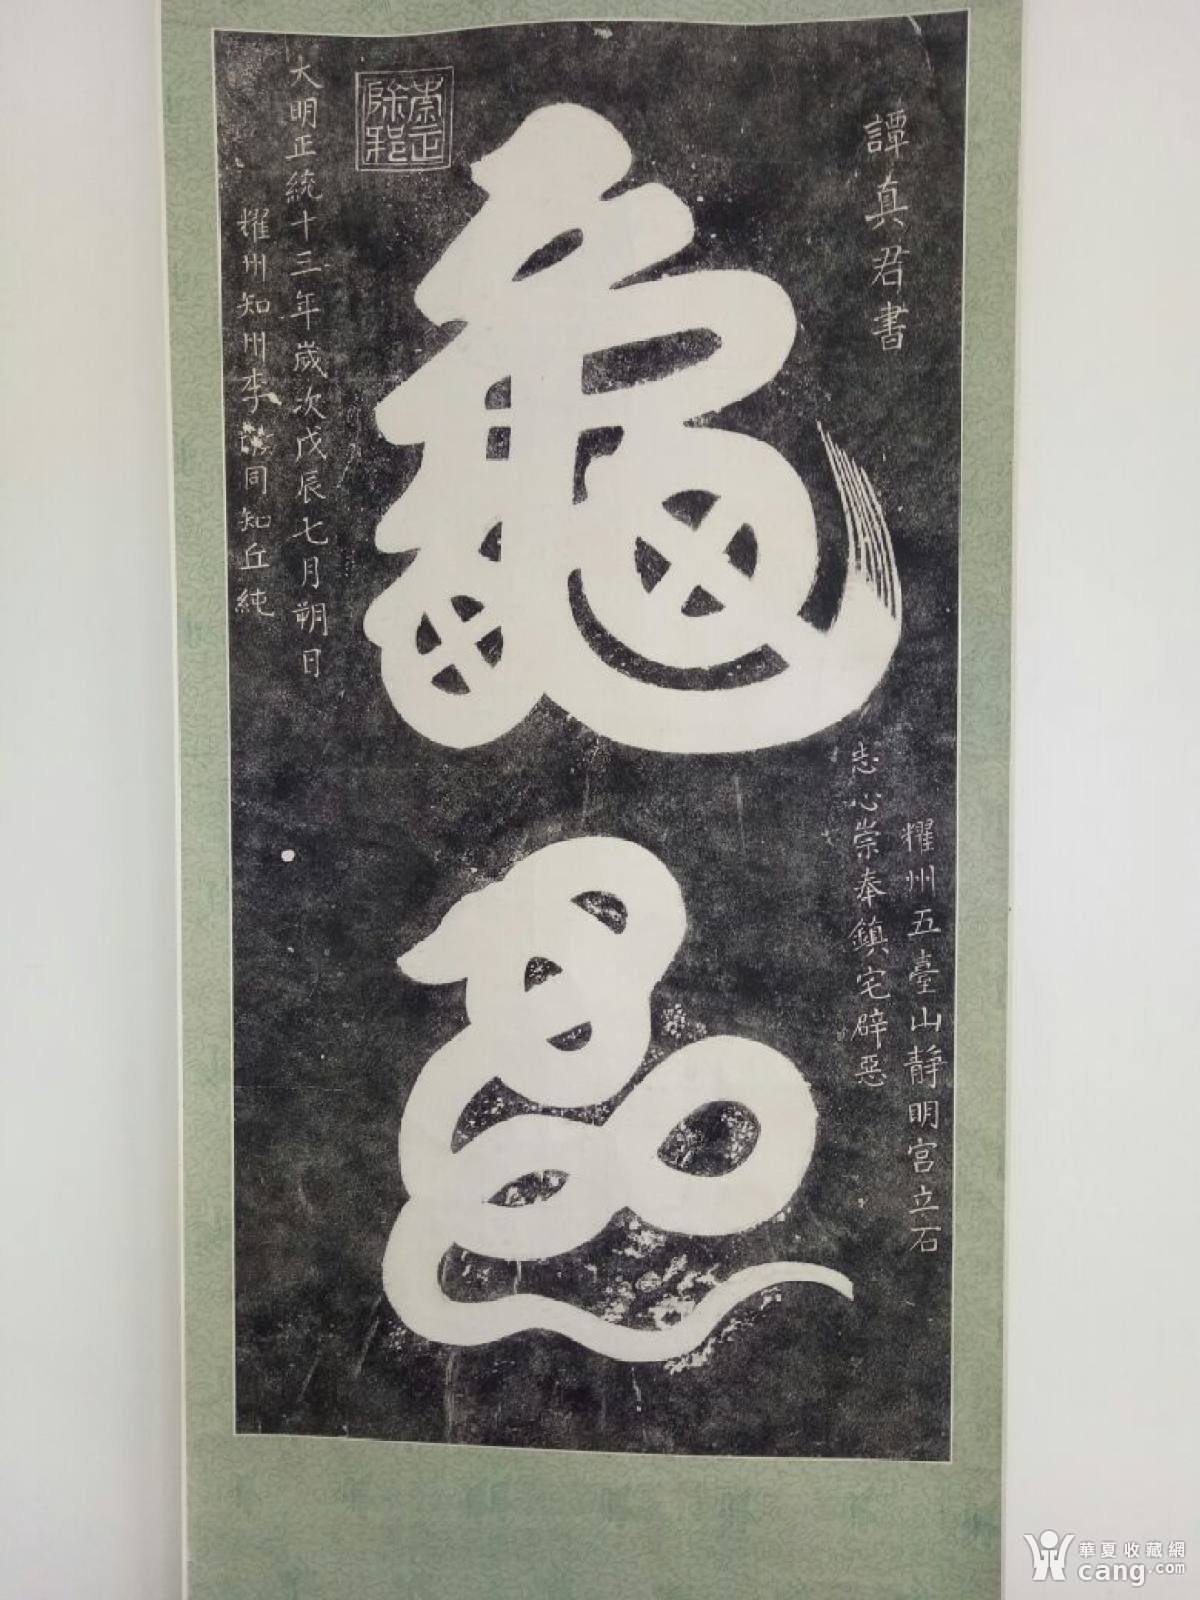 譚真君書
耀州五臺山靜明宮立石
志心崇奉鎮宅辟惡
龜
崇正
除邪
大明正統十三年歲次戊辰七月朔日
耀州知州李 同知丘純
華夏收藏網
cang.com